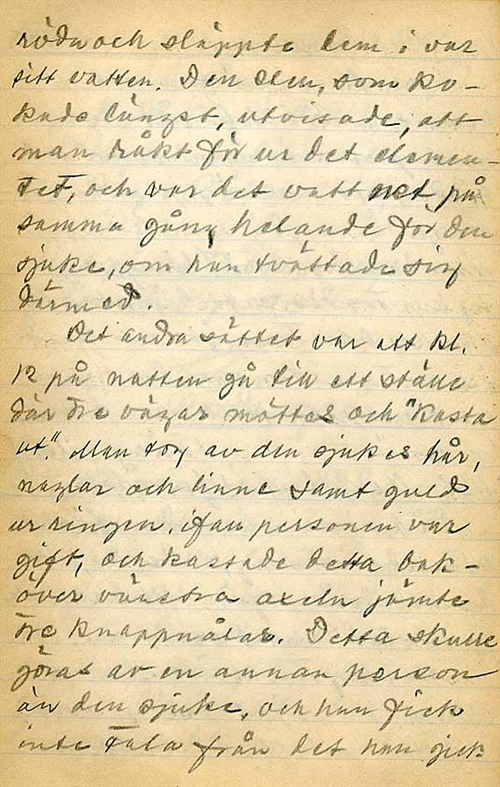 röda och släppte dem i var
sitt vatten. Den sten, som ko-
kade längst, utvisade, att
man råkt för ur det elemen-
tet, och var det vattnet på
samma gång helande för den
sjuke, om han tvättade sig
därmed.
Det andra sättet var att kl.
12 på natten gå till ett ställe
där tre vägar möttes och "kasta
ut." Man tog av den sjukes hår,
naglar och linne samt guld
ur ringen, ifan personen var
gift, och kastade detta bak-
över vänstra axeln jämte
tre knappnålar. Detta skulle
göras av en annan person
än den sjuke, och han fick
inte tala från det han gick